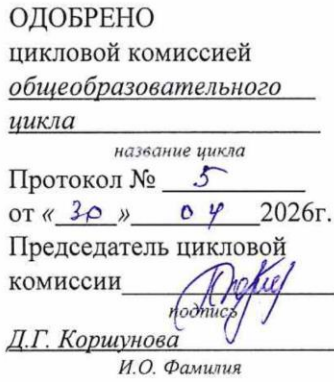 ОДОБРЕНО
цикловой комиссией
общеобразовательного
цикла
название цикла
Протокол № 5
от « 30 » 04 2026г.
Председатель цикловой
комиссии
подпись
Д.Г. Коршунова
И.О. Фамилия